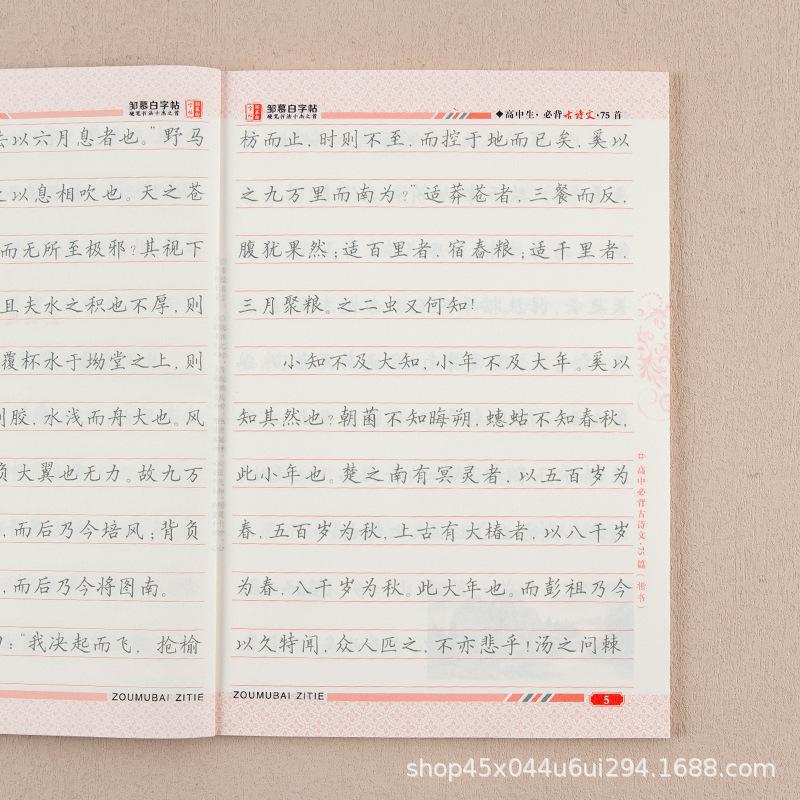 邹慕白字帖
硬笔书法十杰之首
去以六月息者也。”野马
之以息相吹也。天之苍
而无所至极邪?其视下
且夫水之积也不厚,则
覆杯水于坳堂之上,则
则胶,水浅而舟大也。风
负大翼也无力。故九万
,而后乃今培风;背负
,而后乃今将图南。
:“我决起而飞,抢榆
ZOUMUBAI ZITIE
邹慕白字帖
硬笔书法十杰之首
◆高中生·必背古诗文·75首
枋而止,时则不至,而控于地而已矣,奚以
之九万里而南为?”适莽苍者,三餐而反,
腹犹果然;适百里者,宿舂粮;适千里者,
三月聚粮。之二虫又何知!
小知不及大知,小年不及大年。奚以
知其然也?朝菌不知晦朔,蟪蛄不知春秋,
此小年也。楚之南有冥灵者,以五百岁为
春,五百岁为秋,上古有大椿者,以八千岁
为春,八千岁为秋。此大年也。而彭祖乃今
以久特闻,众人匹之,不亦悲乎!汤之问棘
高中必背古诗文·75篇(楷书)
ZOUMUBAI ZITIE
5
shop45x044u6ui294.1688.com